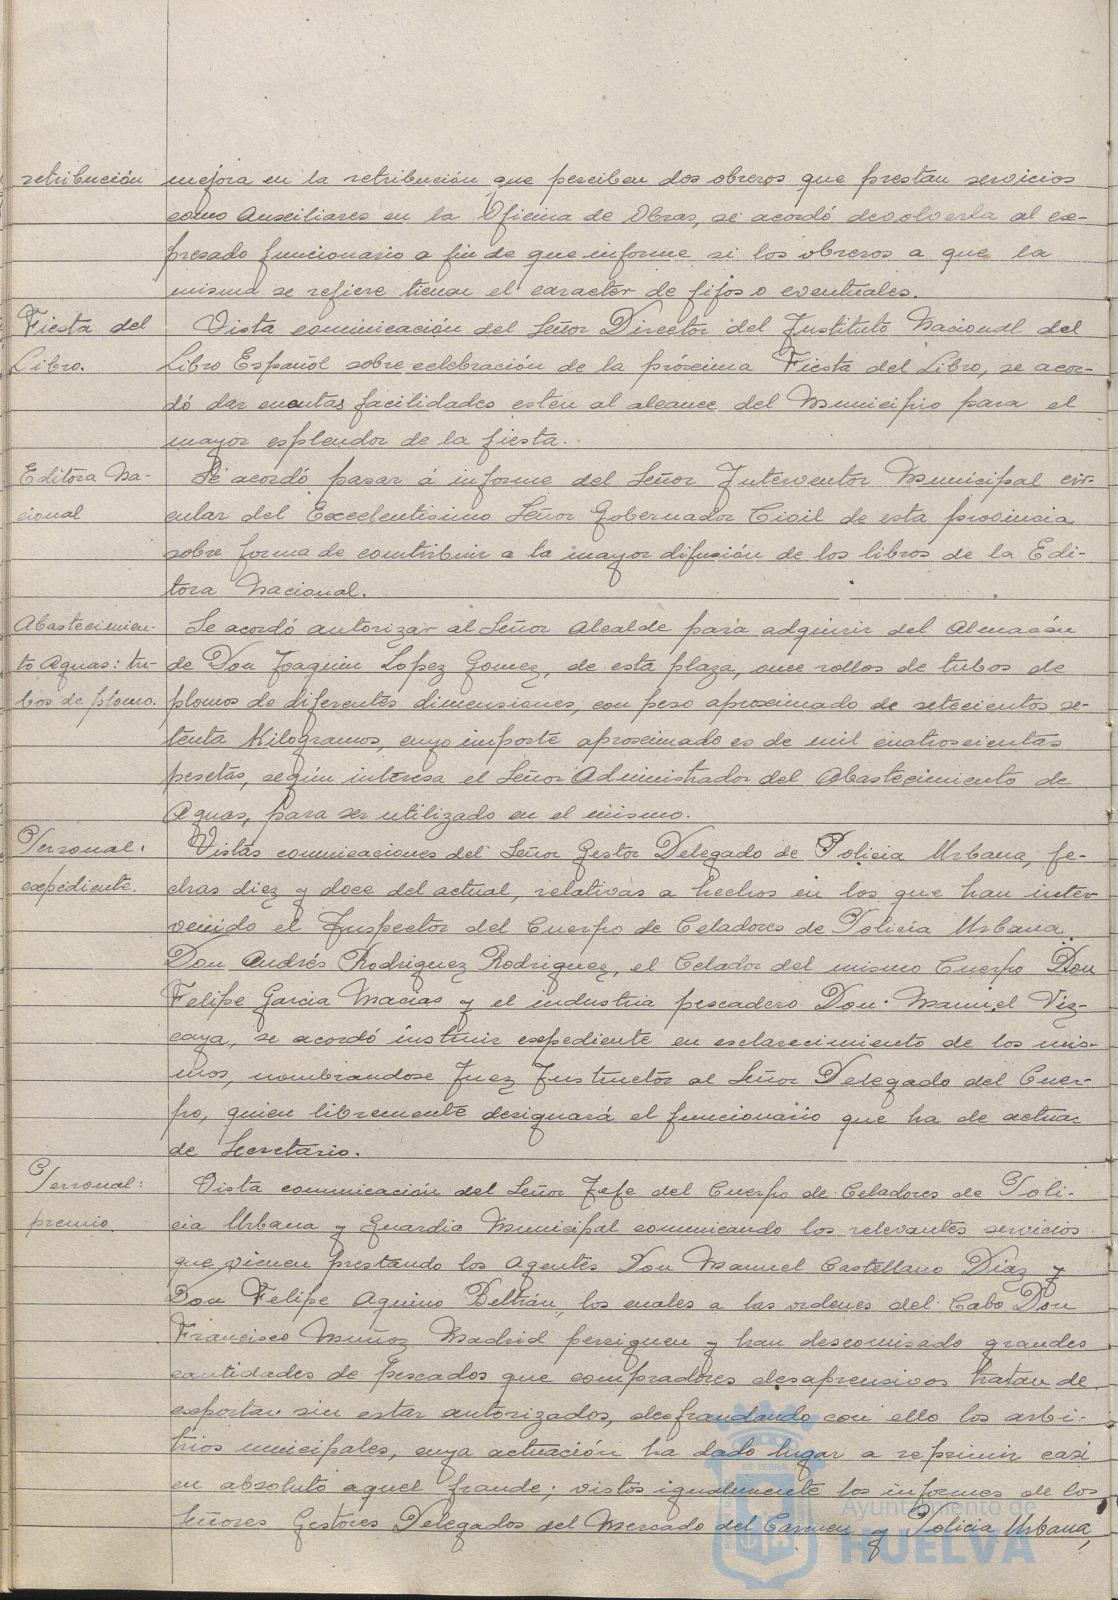 retribución mejora en la retribución que perciben dos obreros que prestan servicios
como Auxiliares en la Oficina de Obras, se acordó devolverla al ex-
presado funcionario a fin de que informe si los obreros a que la
misma se refiere tienen el caracter de fijos o eventuales.
Fiesta del Vista comunicación del Señor Director del Instituto Nacional del
Libro. Libro Español sobre celebración de la próxima Fiesta del Libro, se acor-
dó dar cuantas facilidades esten al alcance del Municipio para el
mayor esplendor de la fiesta.
Editora Na- Se acordó pasar á informe del Señor Interventor Municipal cir-
cional cular del Excelentisimo Señor Gobernador Civil de esta provincia
sobre forma de contribuir a la mayor difusión de los libros de la Edi-
tora Nacional.
Abastecimien- Se acordó autorizar al Señor Alcalde para adquirir del Almacén
to Aguas: tu- de Don Joaquin López Gomez, de esta plaza, once rollos de tubos de
bos de plomo. plomos de diferentes dimensiones, con peso aproximado de setecientos se-
tenta Kilogramos, cuyo importe aproximado es de mil cuatrocientas
pesetas, según interesa el Señor Administrador del Abastecimiento de
Aguas, para ser utilizado en el mismo.
Personal: Vistas comunicaciones del Señor Gestor Delegado de Policia Urbana, fe-
expediente. chas diez y doce del actual, relativas a hechos en los que han inter-
venido el Inspector del Cuerpo de Celadores de Policia Urbana
Don Andrés Rodriguez Rodriguez, el Celador del mismo Cuerpo Don
Felipe Garcia Macias y el industria pescadero Don Manuel Viz-
caya, se acordó instruir expediente en esclarecimiento de los mis-
mos, nombrandose Juez Instructor al Señor Delegado del Cuer-
po, quien libremente designará el funcionario que ha de actuar
de Secretario.
Personal: Vista comunicación del Señor Jefe del Cuerpo de Celadores de Poli-
premio. cia Urbana y Guardia Municipal comunicando los relevantes servicios
que vienen prestando los Agentes Don Manuel Castellano Díaz y
Don Felipe Aquino Beltrán, los cuales a las ordenes del Cabo Don
Francisco Muñoz Madrid persiguen y han descomisado grandes
cantidades de pescados que compradores desaprensivos tratan de
exportar sin estar autorizados, defraudando con ello los arbi-
trios municipales, cuya actuación ha dado lugar a reprimir casi
en absoluto aquel fraude; vistos igualmente los informes de los
Señores Gestores Delegados del Mercado del Carmen y Policia Urbana,
Ayuntamiento de
HUELVA